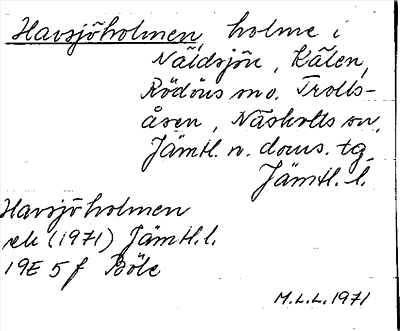 Havsjöholmen, holme i
Näldsjön, Kälen,
Rödöns sn o. Trolls-
åsen, Näskotts sn,
Jämtl. n. doms. tg
Jämtl. l.
Havsjöholmen
ek (1971) Jämtl. l.
19E 5 f Böle
M.L.L. 1971